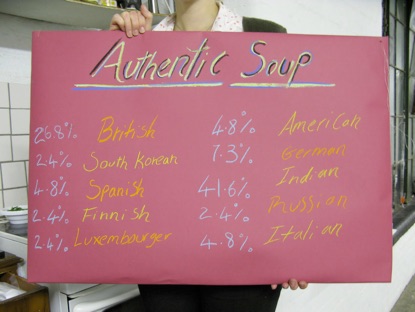 Authentic Soup
26.8% British
2.4% South Korean
4.8% Spanish
2.4% Finnish
2.4% Luxembourger
4.8% American
7.3% German
41.6% Indian
2.4% Russian
4.8% Italian